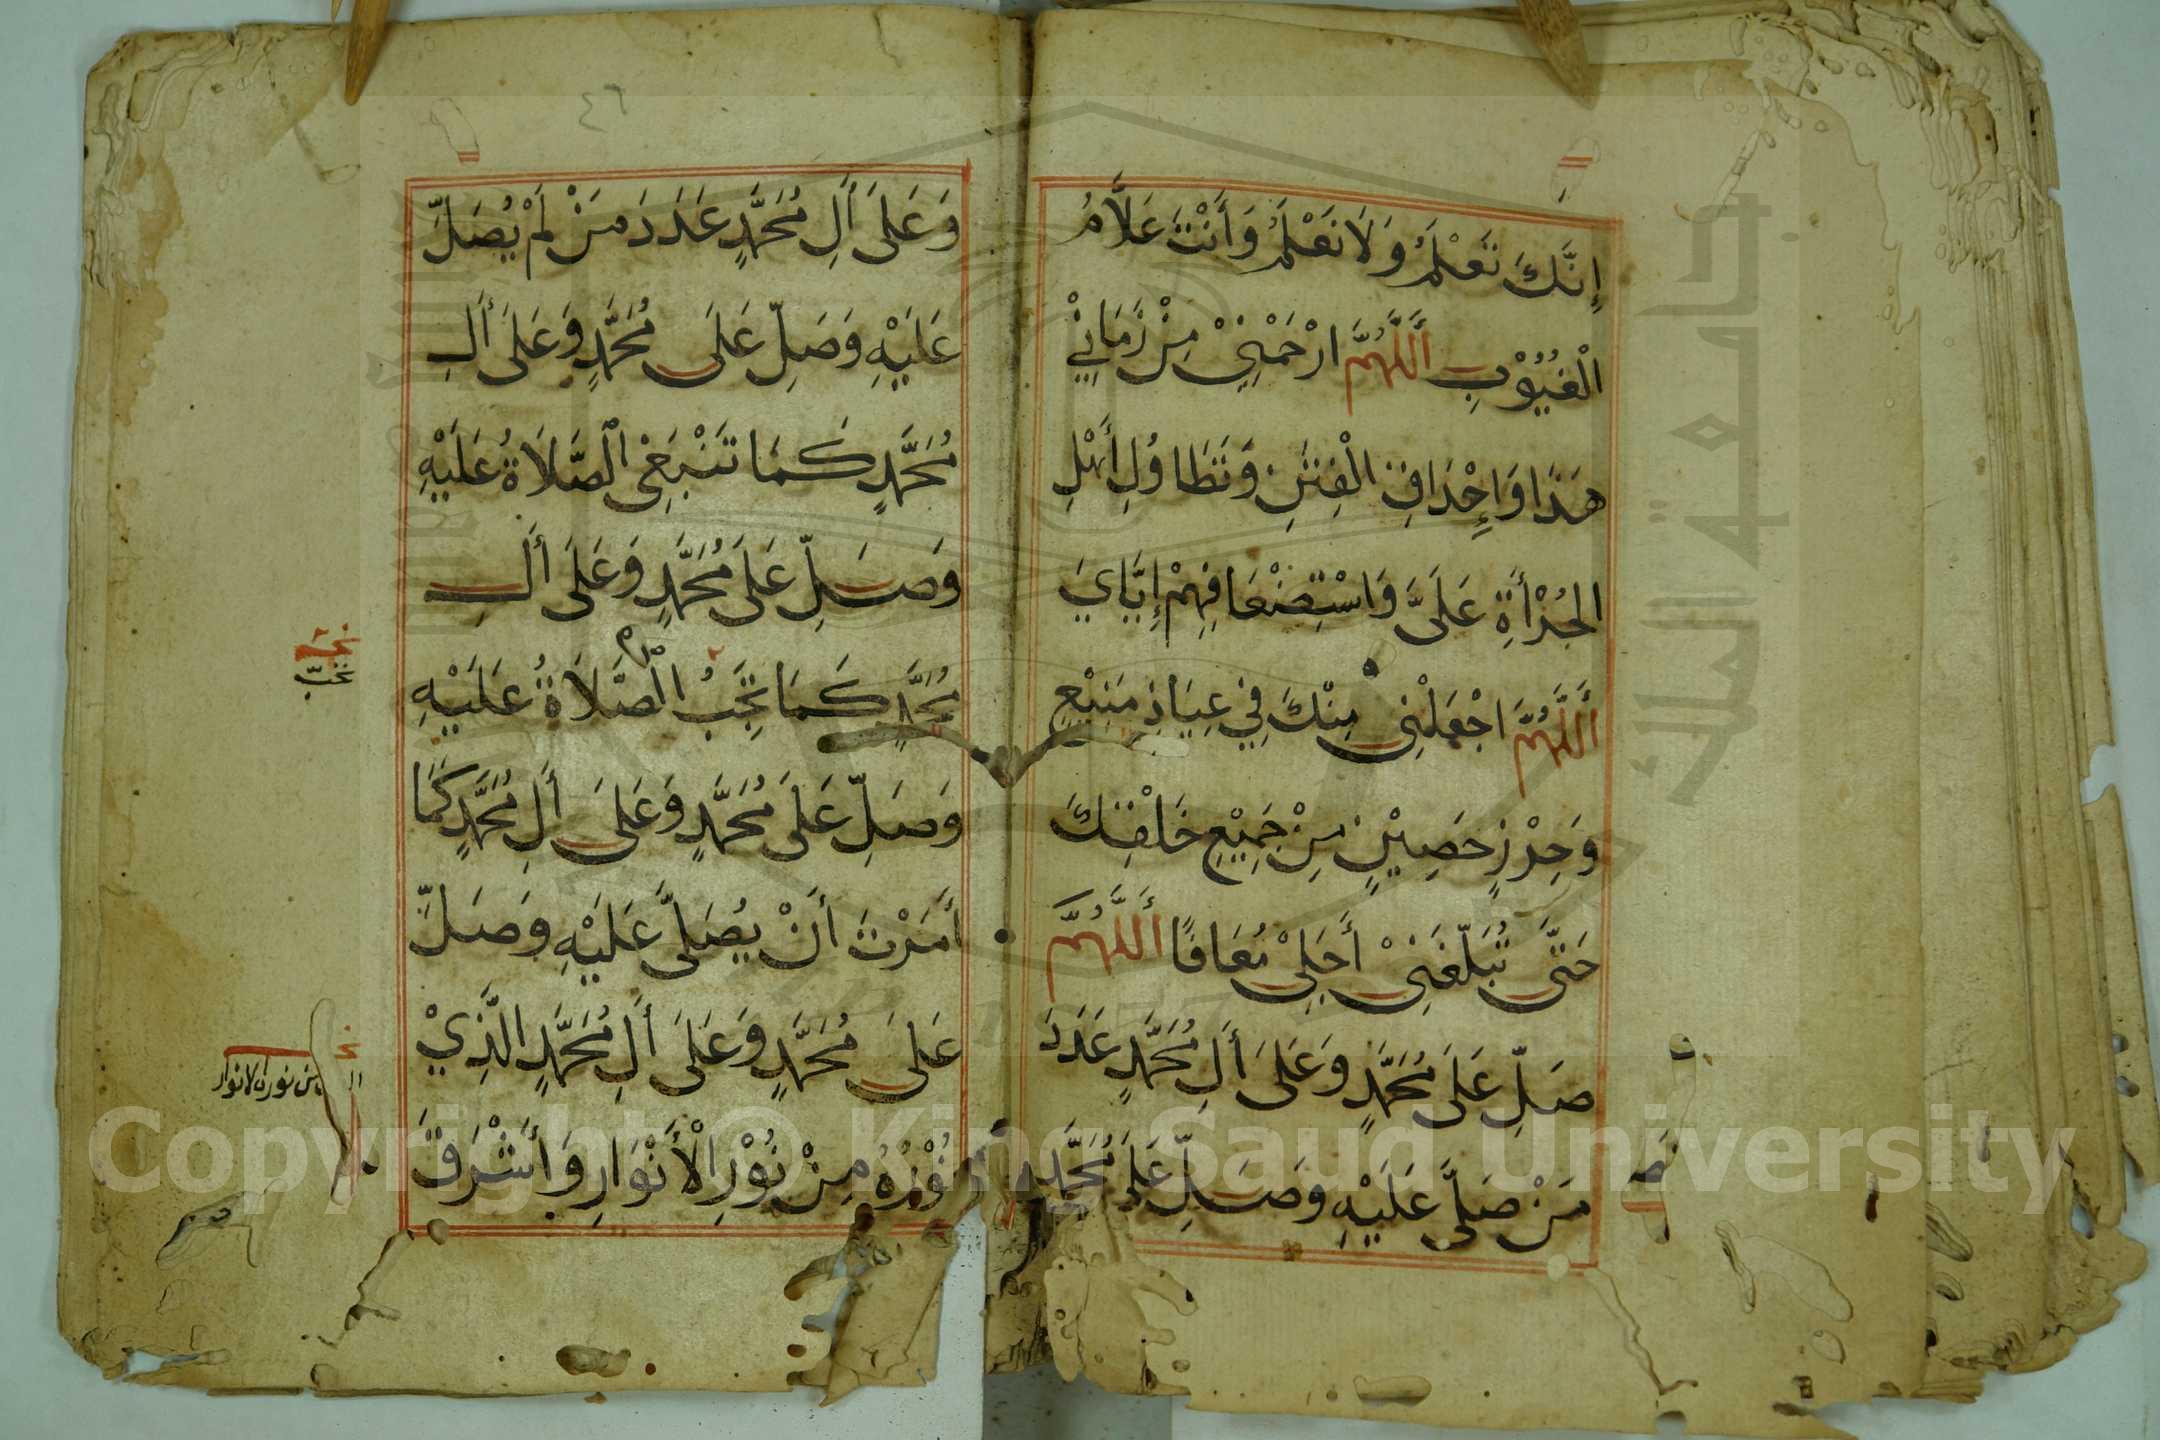 إِنَّكَ تَعْلَمُ وَلَا نَعْلَمُ وَأَنْتَ عَلَّامُ
الْغُيُوْبِ أَللَّهُمَّ ارْحَمْنِيْ مِنْ زَمَانِيْ
هَذَا وَإِحْدَاقِ الْفِتَنِ وَتَطَاوُلِ أَهْلِ
الْجُرْأَةِ عَلَيَّ وَاسْتِضْعَافِهِمْ إِيَّايَ
أَللَّهُمَّ اجْعَلْنِي مِنْكَ فِي عِيَاذٍ مَنِيْعٍ
وَحِرْزٍ حَصِيْنٍ مِنْ جَمِيْعِ خَلْقِكَ
حَتَّى تُبَلِّغَنِيْ أَجَلِيْ مُعَافًا أَللَّهُمَّ
صَلِّ عَلَى مُحَمَّدٍ وَعَلَى أَلِ مُحَمَّدٍ عَدَدَ
مَنْ صَلَّى عَلَيْهِ وَصَلِّ عَلَى مُحَمَّدٍ
٤٦
وَعَلَى أَلِ مُحَمَّدٍ عَدَدَ مَنْ لَمْ يُصَلِّ
عَلَيْهِ وَصَلِّ عَلَى مُحَمَّدٍ وَعَلَى أَلِ
مُحَمَّدٍ كَمَا تَنْبَغِي الصَّلَاةُ عَلَيْهِ
وَصَلِّ عَلَى مُحَمَّدٍ وَعَلَى أَلِ
مُحَمَّدٍ كَمَا تَجِبُ الصَّلَاةُ عَلَيْهِ
وَصَلِّ عَلَى مُحَمَّدٍ وَعَلَى أَلِ مُحَمَّدٍ كَمَا
أَمَرْتَ أَنْ يُصَلَّى عَلَيْهِ وَصَلِّ
عَلَى مُحَمَّدٍ وَعَلَى أَلِ مُحَمَّدٍ الَّذِيْ
نُوْرُهُ مِنْ نُوْرِ الْأَنْوَارِ وَأَشْرَقَ
من نور الانوار
جامعة الملك
Copyright © King Saud University